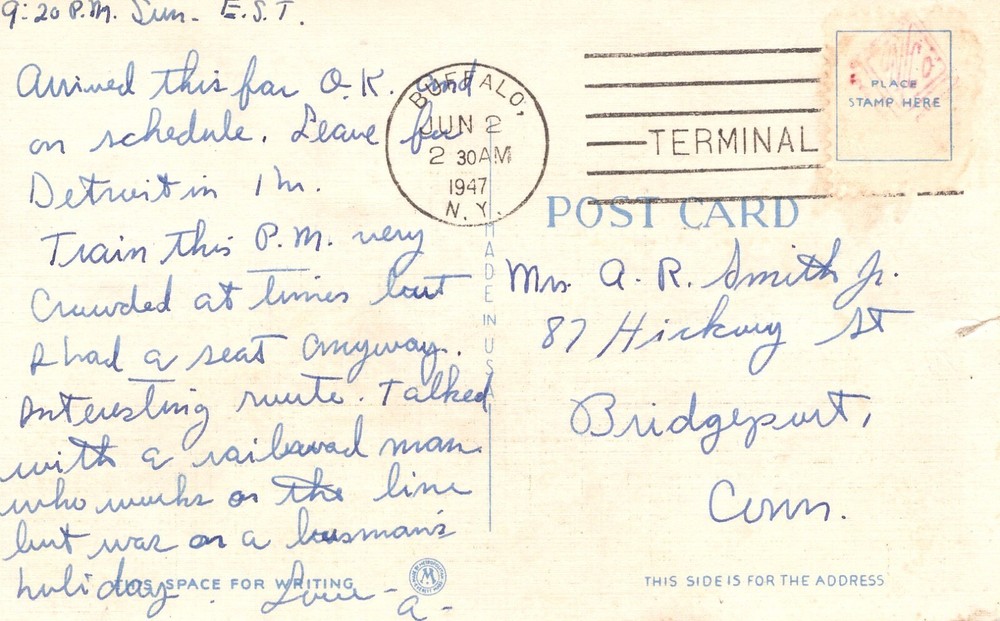 9:20 P.M. Sun. E.S.T.
Arrived this far O.K. and
on schedule. Leave for
Detroit in 1 hr.
Train this P.M. very
Crowded at times but
I had a seat anyway.
Interesting route. Talked
with a railroad man
who works on the line
but was on a busman's
holiday. Love -
a -
THIS SPACE FOR WRITING
BUFFALO,
JUN 2
2 30 AM
1947
N. Y.
TERMINAL
PLACE
STAMP HERE
POST CARD
MADE IN USA
Mrs. A. R. Smith Jr.
87 Hickory St
Bridgeport,
Conn.
THIS SIDE IS FOR THE ADDRESS